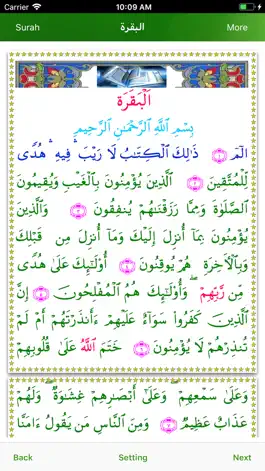 Carrier 10:09 AM
Surah البقرة More
اَلْبَقَرَة
بِسْمِ ٱللَّهِ ٱلرَّحْمَٰنِ ٱلرَّحِيمِ
الٓمٓ ۝١ ذَٰلِكَ ٱلْكِتَٰبُ لَا رَيْبَ ۛ فِيهِ ۛ هُدًى
لِّلْمُتَّقِينَ ۝٢ ٱلَّذِينَ يُؤْمِنُونَ بِٱلْغَيْبِ وَيُقِيمُونَ
ٱلصَّلَوٰةَ وَمِمَّا رَزَقْنَٰهُمْ يُنفِقُونَ ۝٣ وَٱلَّذِينَ
يُؤْمِنُونَ بِمَآ أُنزِلَ إِلَيْكَ وَمَآ أُنزِلَ مِن قَبْلِكَ
وَبِٱلْءَاخِرَةِ هُمْ يُوقِنُونَ ۝٤ أُو۟لَٰٓئِكَ عَلَىٰ هُدًى
مِّن رَّبِّهِمْ ۖ وَأُو۟لَٰٓئِكَ هُمُ ٱلْمُفْلِحُونَ ۝٥ إِنَّ
ٱلَّذِينَ كَفَرُوا۟ سَوَآءٌ عَلَيْهِمْ ءَأَنذَرْتَهُمْ أَمْ لَمْ
تُنذِرْهُمْ لَا يُؤْمِنُونَ ۝٦ خَتَمَ ٱللَّهُ عَلَىٰ قُلُوبِهِمْ
وَعَلَىٰ سَمْعِهِمْ ۖ وَعَلَىٰٓ أَبْصَٰرِهِمْ غِشَٰوَةٌ ۖ وَلَهُمْ
عَذَابٌ عَظِيمٌ ۝٧ وَمِنَ ٱلنَّاسِ مَن يَقُولُ ءَامَنَّا
Back Setting Next